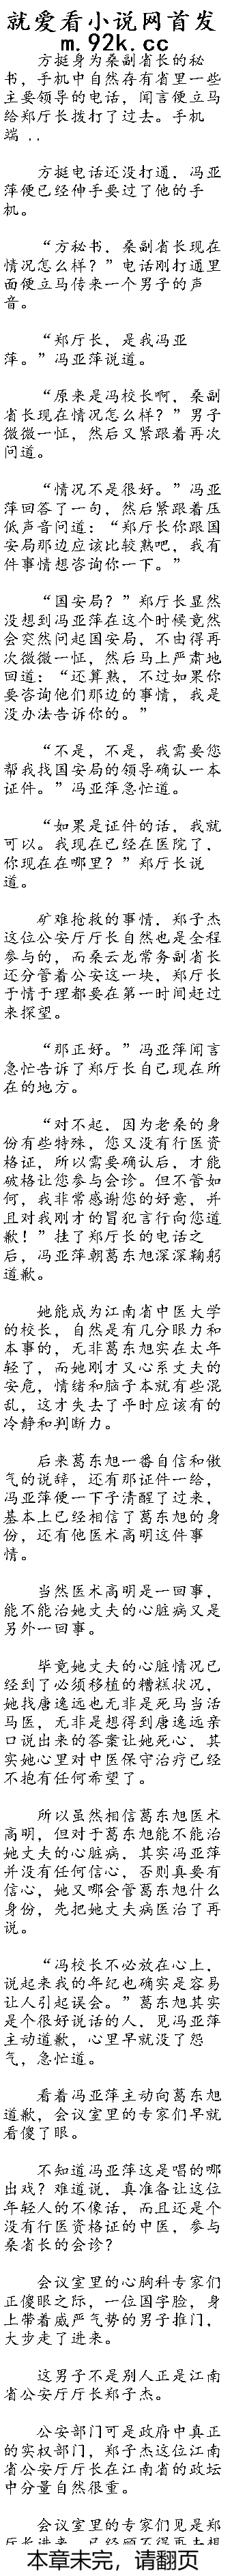 就爱看小说网首发
m.92k.cc
方挺身为桑副省长的秘
书，手机中自然存有省里一些
主要领导的电话，闻言便立马
给郑厅长拨打了过去。手机
端 ..
方挺电话还没打通，冯亚
萍便已经伸手要过了他的手
机。
“方秘书，桑副省长现在
情况怎么样？”电话刚打通里
面便立马传来一个男子的声
音。
“郑厅长，是我冯亚
萍。”冯亚萍说道。
“原来是冯校长啊，桑副
省长现在情况怎么样？”男子
微微一怔，然后又紧跟着再次
问道。
“情况不是很好。”冯亚
萍回答了一句，然后紧跟着压
低声音问道：“郑厅长你跟国
安局那边应该比较熟吧，我有
件事情想咨询你一下。”
“国安局？”郑厅长显然
没想到冯亚萍在这个时候竟然
会突然问起国安局，不由得再
次微微一怔，然后马上严肃地
回道：“还算熟，不过如果你
要咨询他们那边的事情，我是
没办法告诉你的。”
“不是，不是，我需要您
帮我找国安局的领导确认一本
证件。”冯亚萍急忙道。
“如果是证件的话，我就
可以。我现在已经在医院了，
你现在在哪里？”郑厅长说
道。
矿难抢救的事情，郑子杰
这位公安厅厅长自然也是全程
参与的，而桑云龙常务副省长
还分管着公安这一块，郑厅长
于情于理都要在第一时间赶过
来探望。
“那正好。”冯亚萍闻言
急忙告诉了郑厅长自己现在所
在的地方。
“对不起，因为老桑的身
份有些特殊，您又没有行医资
格证，所以需要确认后，才能
破格让您参与会诊。但不管如
何，我非常感谢您的好意，并
且对我刚才的冒犯言行向您道
歉！”挂了郑厅长的电话之
后，冯亚萍朝葛东旭深深鞠躬
道歉。
她能成为江南省中医大学
的校长，自然是有几分眼力和
本事的，无非葛东旭实在太年
轻了，而她刚才又心系丈夫的
安危，情绪和脑子本就有些混
乱，这才失去了平时应该有的
冷静和判断力。
后来葛东旭一番自信和傲
气的说辞，还有那证件一给，
冯亚萍便一下子清醒了过来，
基本上已经相信了葛东旭的身
份，还有他医术高明这件事
情。
当然医术高明是一回事，
能不能治她丈夫的心脏病又是
另外一回事。
毕竟她丈夫的心脏情况已
经到了必须移植的糟糕状况，
她找唐逸远也无非是死马当活
马医，无非是想得到唐逸远亲
口说出来的答案让她死心，其
实她心里对中医保守治疗已经
不抱有任何希望了。
所以虽然相信葛东旭医术
高明，但对于葛东旭能不能治
她丈夫的心脏病，其实冯亚萍
并没有任何信心，否则真要有
信心，她又哪会管葛东旭什么
身份，先把她丈夫病医治了再
说。
“冯校长不必放在心上，
说起来我的年纪也确实是容易
让人引起误会。”葛东旭其实
是个很好说话的人，见冯亚萍
主动道歉，心里早就没了怨
气，急忙道。
看着冯亚萍主动向葛东旭
道歉，会议室里的专家们早就
看傻了眼。
不知道冯亚萍这是唱的哪
出戏？难道说，真准备让这位
年轻人的不像话，而且还是个
没有行医资格证的中医，参与
桑省长的会诊？
会议室里的心胸科专家们
正傻眼之际，一位国字脸，身
上带着威严气势的男子推门，
大步走了进来。
这男子不是别人正是江南
省公安厅厅长郑子杰。
公安部门可是政府中真正
的实权部门，郑子杰这位江南
省公安厅厅长在江南省的政坛
中分量自然很重。
会议室里的专家们见是郑
厅长进来，已经顾不得再去想
本章未完，请翻页